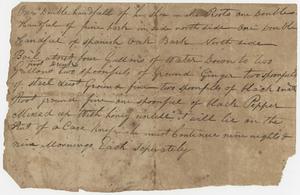 Two double handfulls of the Roots one Double
Handful of pine bark in side north side one Double
Handful of Spanish Oak Bark North side
Boil about four Gallons of Water Down to two
Gallons two spoonfuls of Ground Ginger two spoonfuls
of Steel Dust Ground fine two spoonfuls of black
Root ground fine one spoonful of Black Pepper
Mixed up with honey untill it will lie on the
Point of a Case knife must Continue nine nights &
nine Mornings Each Seperately